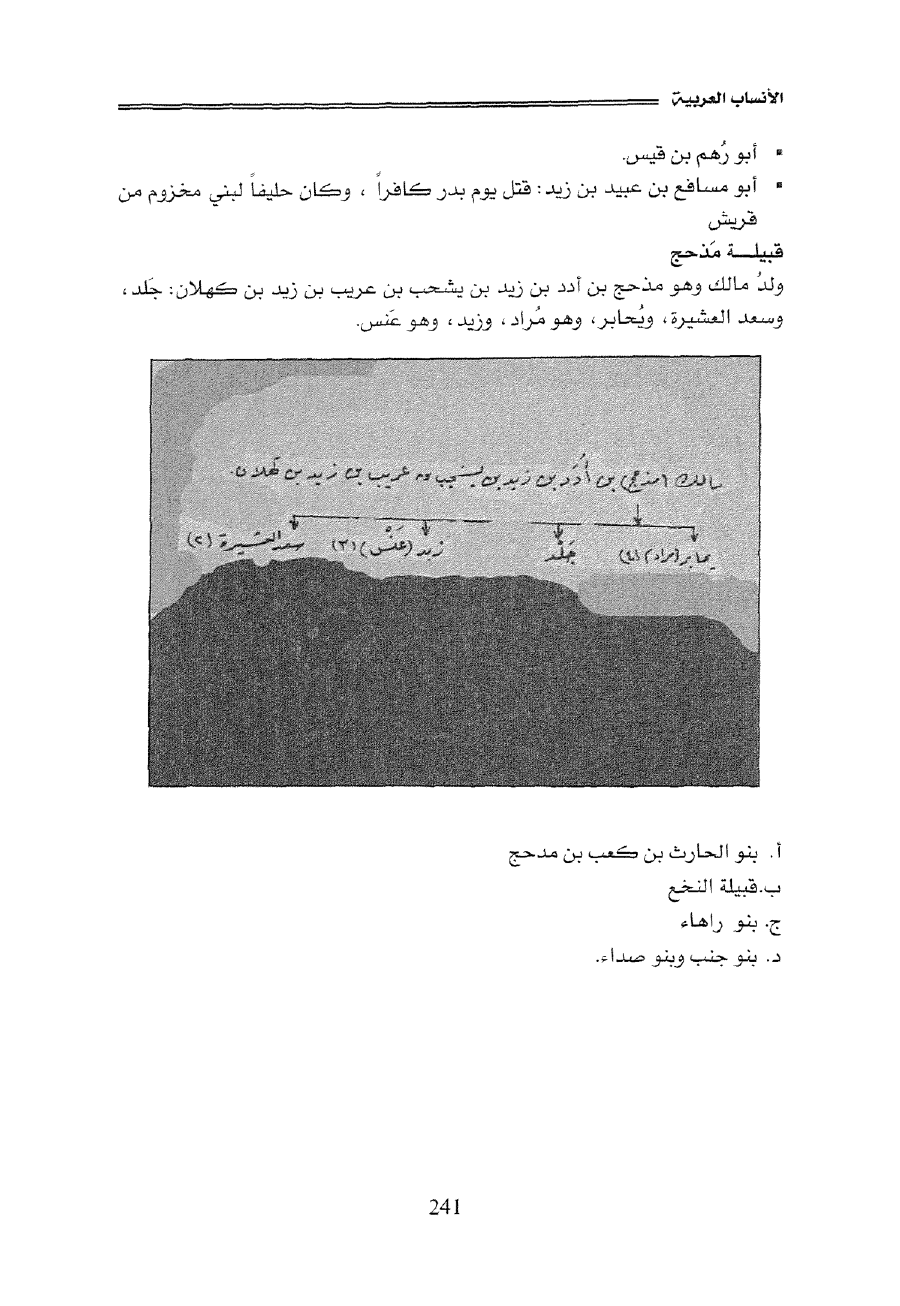 الأنساب العربية
▪ أبو رُهم بن قيس.
▪ أبو مسافع بن عبيد بن زيد: قتل يوم بدر كافراً ، وكان حليفاً لبني مخزوم من
قريش
قبيلـــة مَذحج
ولدُ مالك وهو مذحج بن أدد بن زيد بن يشحب بن عريب بن زيد بن كهلان: جَلد،
وسعد العشيرة، ويُحابر، وهو مُراد، وزيد، وهو عَنس.
مالك (مذحج) بن أُدَد بن زيد بن يشجب بن عريب بن زيد بن كهلان.
يحابر (مراد) (٤) جَلْد زيد (عَنْس) (٣) سعد العشيرة (٢)
أ. بنو الحارث بن كعب بن مدحج
ب.قبيلة النخع
ج. بنو راهاء
د. بنو جنب وبنو صداء.
241